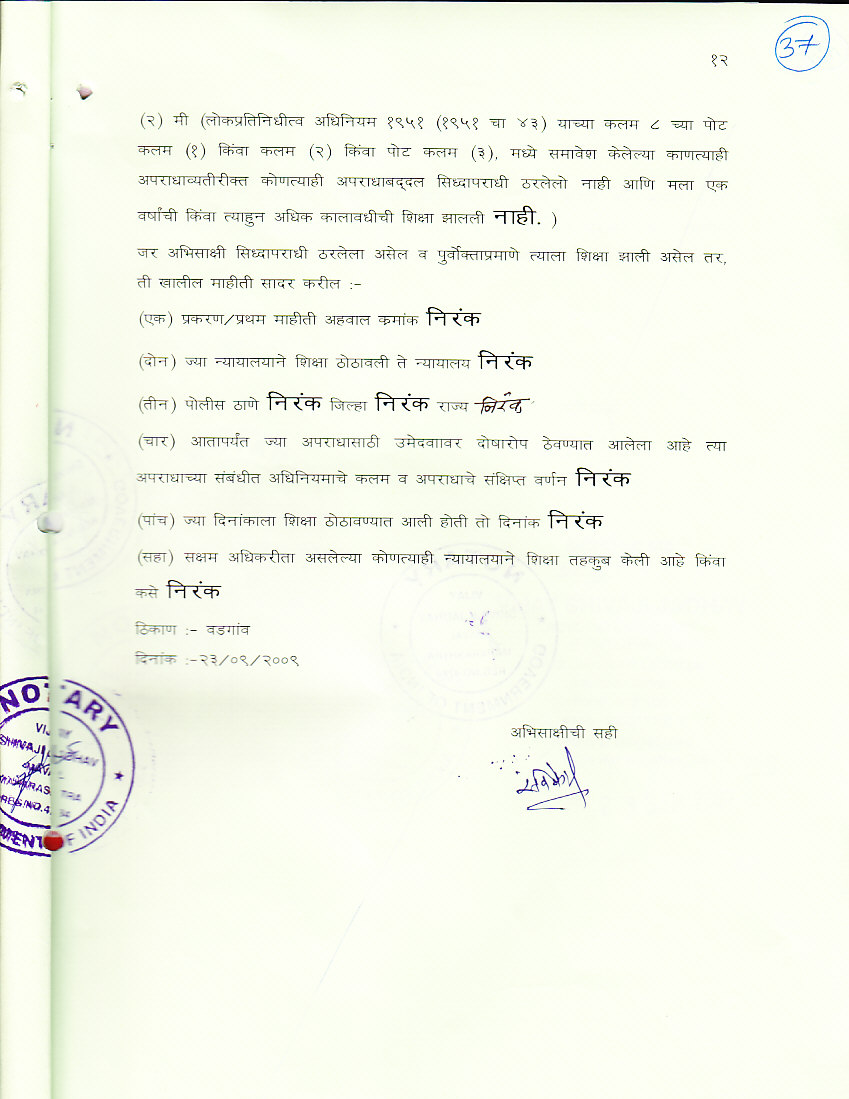 37
१२
(२) मी (लोकप्रतिनिधीत्व अधिनियम १९५१ (१९५१ चा ४३) याच्या कलम ८ च्या पोट
कलम (१) किंवा कलम (२) किंवा पोट कलम (३), मध्ये समावेश केलेल्या काणत्याही
अपराधाव्यतीरीक्त कोणत्याही अपराधाबद्दल सिध्दापराधी ठरलेलो नाही आणि मला एक
वर्षाची किंवा त्याहुन अधिक कालावधीची शिक्षा झालली नाही. )
जर अभिसाक्षी सिध्दापराधी ठरलेला असेल व पुर्वोक्ताप्रमाणे त्याला शिक्षा झाली असेल तर,
ती खालील माहीती सादर करील :-
(एक) प्रकरण/प्रथम माहीती अहवाल क्रमांक निरंक
(दोन) ज्या न्यायालयाने शिक्षा ठोठावली ते न्यायालय निरंक
(तीन) पोलीस ठाणे निरंक जिल्हा निरंक राज्य निरंक
(चार) आतापर्यंत ज्या अपराधासाठी उमेदवाावर दोषारोप ठेवण्यात आलेला आहे त्या
अपराधाच्या संबंधीत अधिनियमाचे कलम व अपराधाचे संक्षिप्त वर्णन निरंक
(पांच) ज्या दिनांकाला शिक्षा ठोठावण्यात आली होती तो दिनांक निरंक
(सहा) सक्षम अधिकरीता असलेल्या कोणत्याही न्यायालयाने शिक्षा तहकुब केली आहे किंवा
कसे निरंक
ठिकाण :- वडगांव
दिनांक :-२३/०९/२००९
NOTARY
OF INDIA
अभिसाक्षीची सही